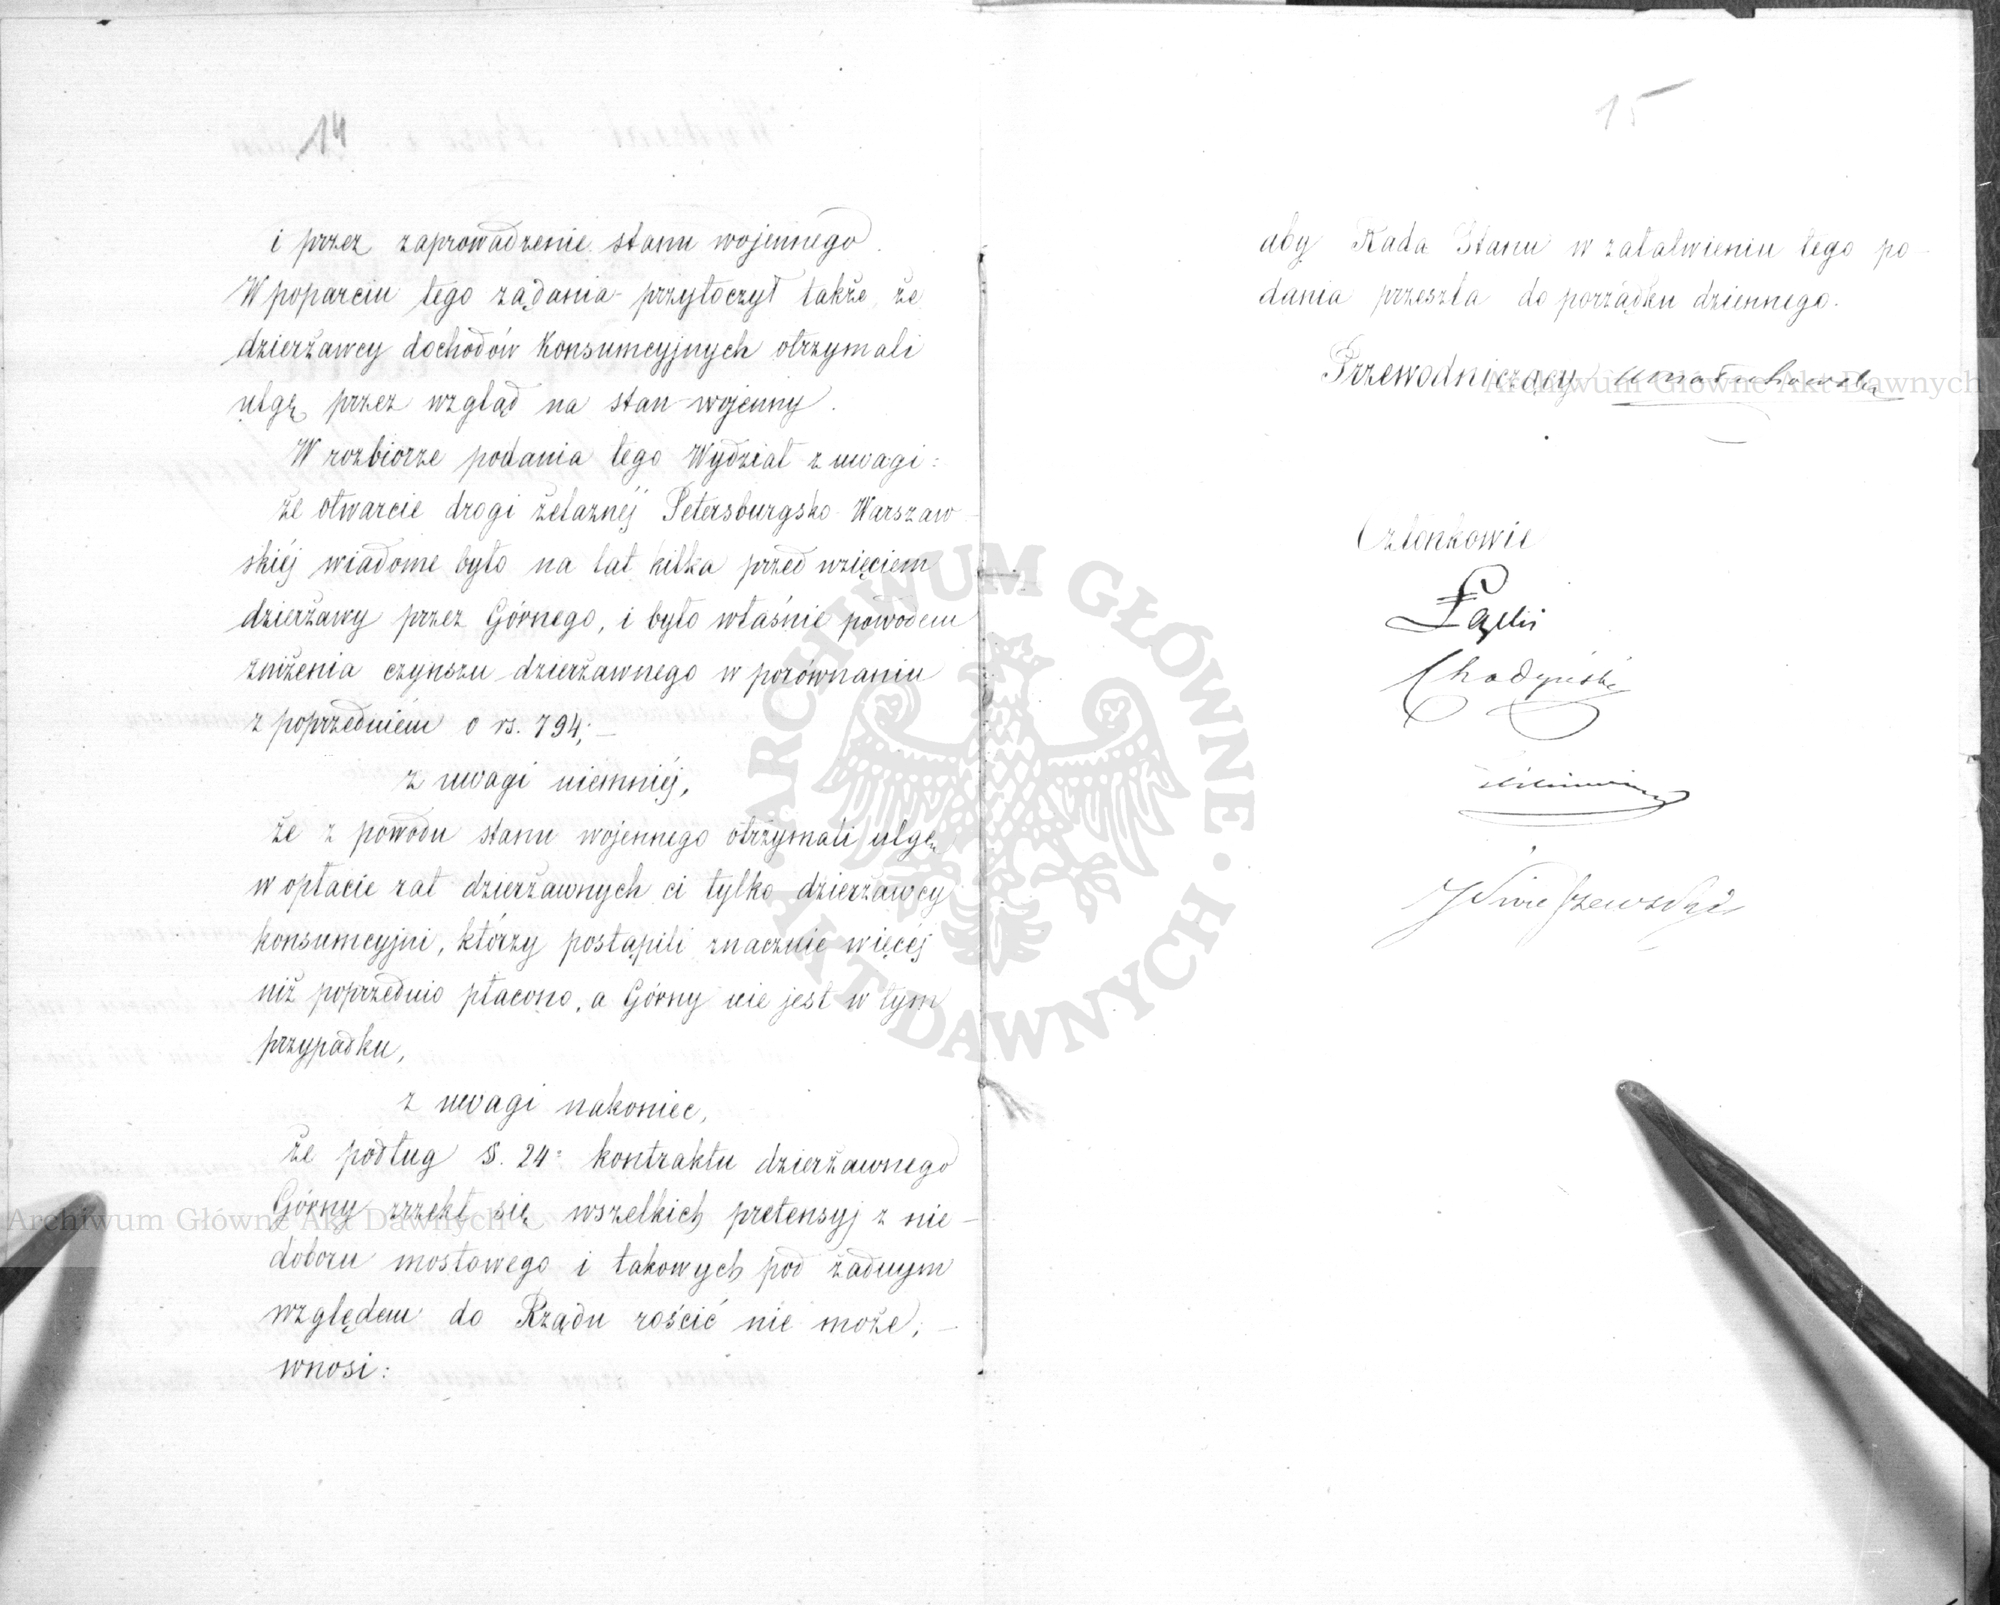 14
i przez zaprowadzenie stanu wojennego.
W poparciu tego żądania przytoczył także, że
dzierżawcy dochodów konsumcyjnych otrzymali
ulgę przez wzgląd na stan wojenny.
W rozbiorze podania tego Wydział z uwagi:
że otwarcie drogi żelaznéj Petersburgsko-Warszaw-
skiéj wiadome było na lat kilka przed wzięciem
dzierżawy przez Górnego, i było właśnie powodem
zniżenia czynszu dzierżawnego w porównaniu
z poprzedniém o rs. 794; —
z uwagi niemniéj,
że z powodu stanu wojennego otrzymali ulgę
w opłacie rat dzierżawnych ci tylko dzierżawcy
konsumcyjni, którzy postąpili znacznie więcéj
niż poprzednio płacono, a Górny nie jest w tym
przypadku,
z uwagi nakoniec,
że podług §. 24. kontraktu dzierżawnego
Górny zrzekł się wszelkich pretensyj z nie-
doboru mostowego i takowych pod żadnym
względem do Rządu rościć nie może; —
wnosi:
15
aby Rada Stanu w załatwieniu tego po-
dania przeszła do porządku dziennego.
Przewodniczący
Członkowie
Łęski
Chodyński
ARCHIWUM GŁÓWNE AKT DAWNYCH
Archiwum Główne Akt Dawnych
Archiwum Główne Akt Dawnych